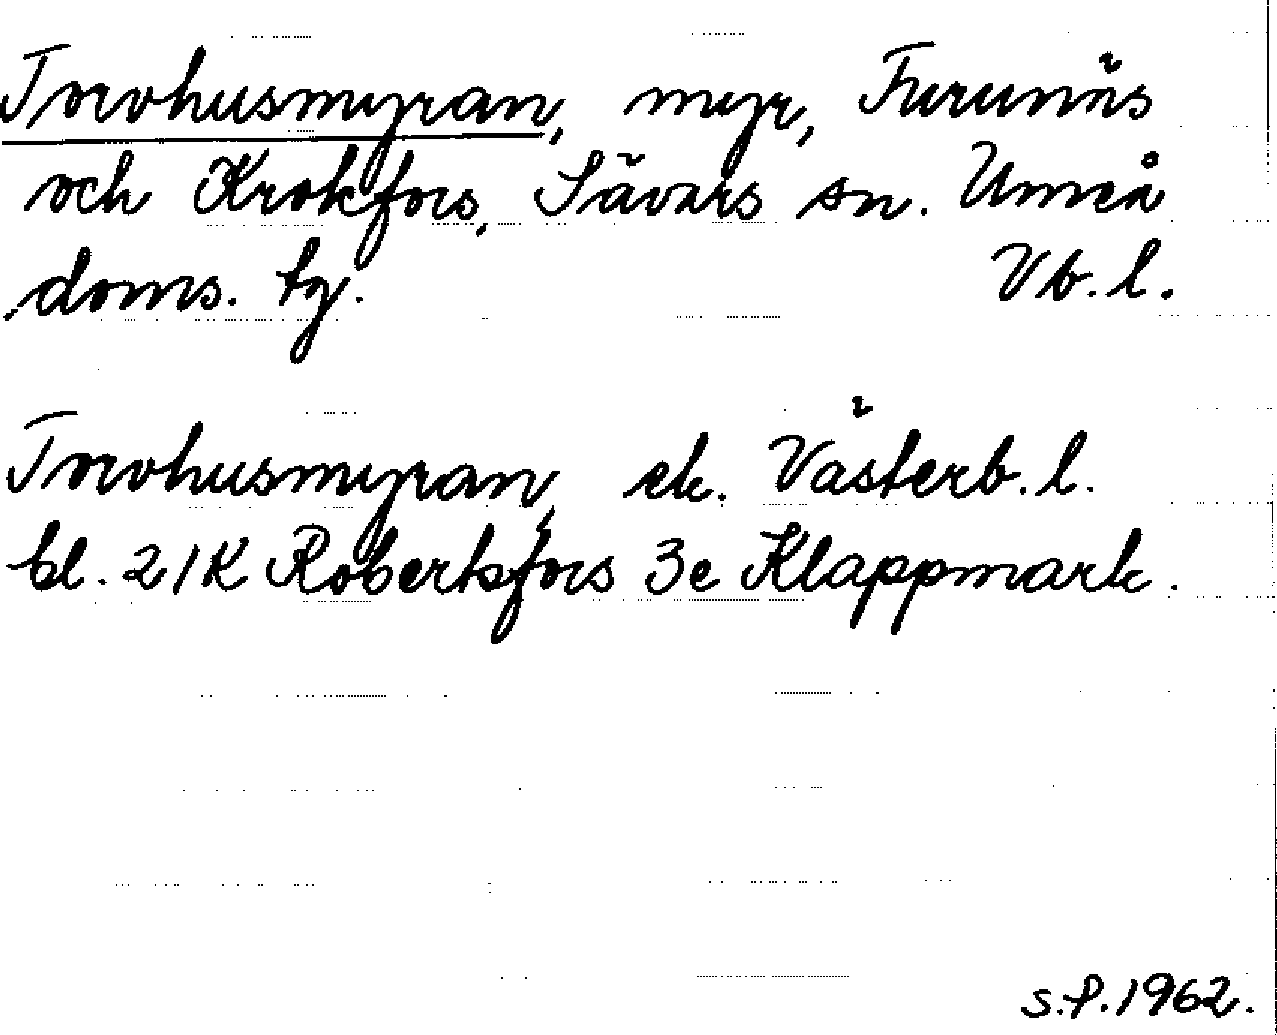 Torvhusmyran, myr, Furunäs
och Krokfors, Sävars sn. Umeå
doms. tg. Vb. l.
Torvhusmyran, ek. Västerb. l.
bl. 21K Robertsfors 3e Klappmark.
S.P. 1962.